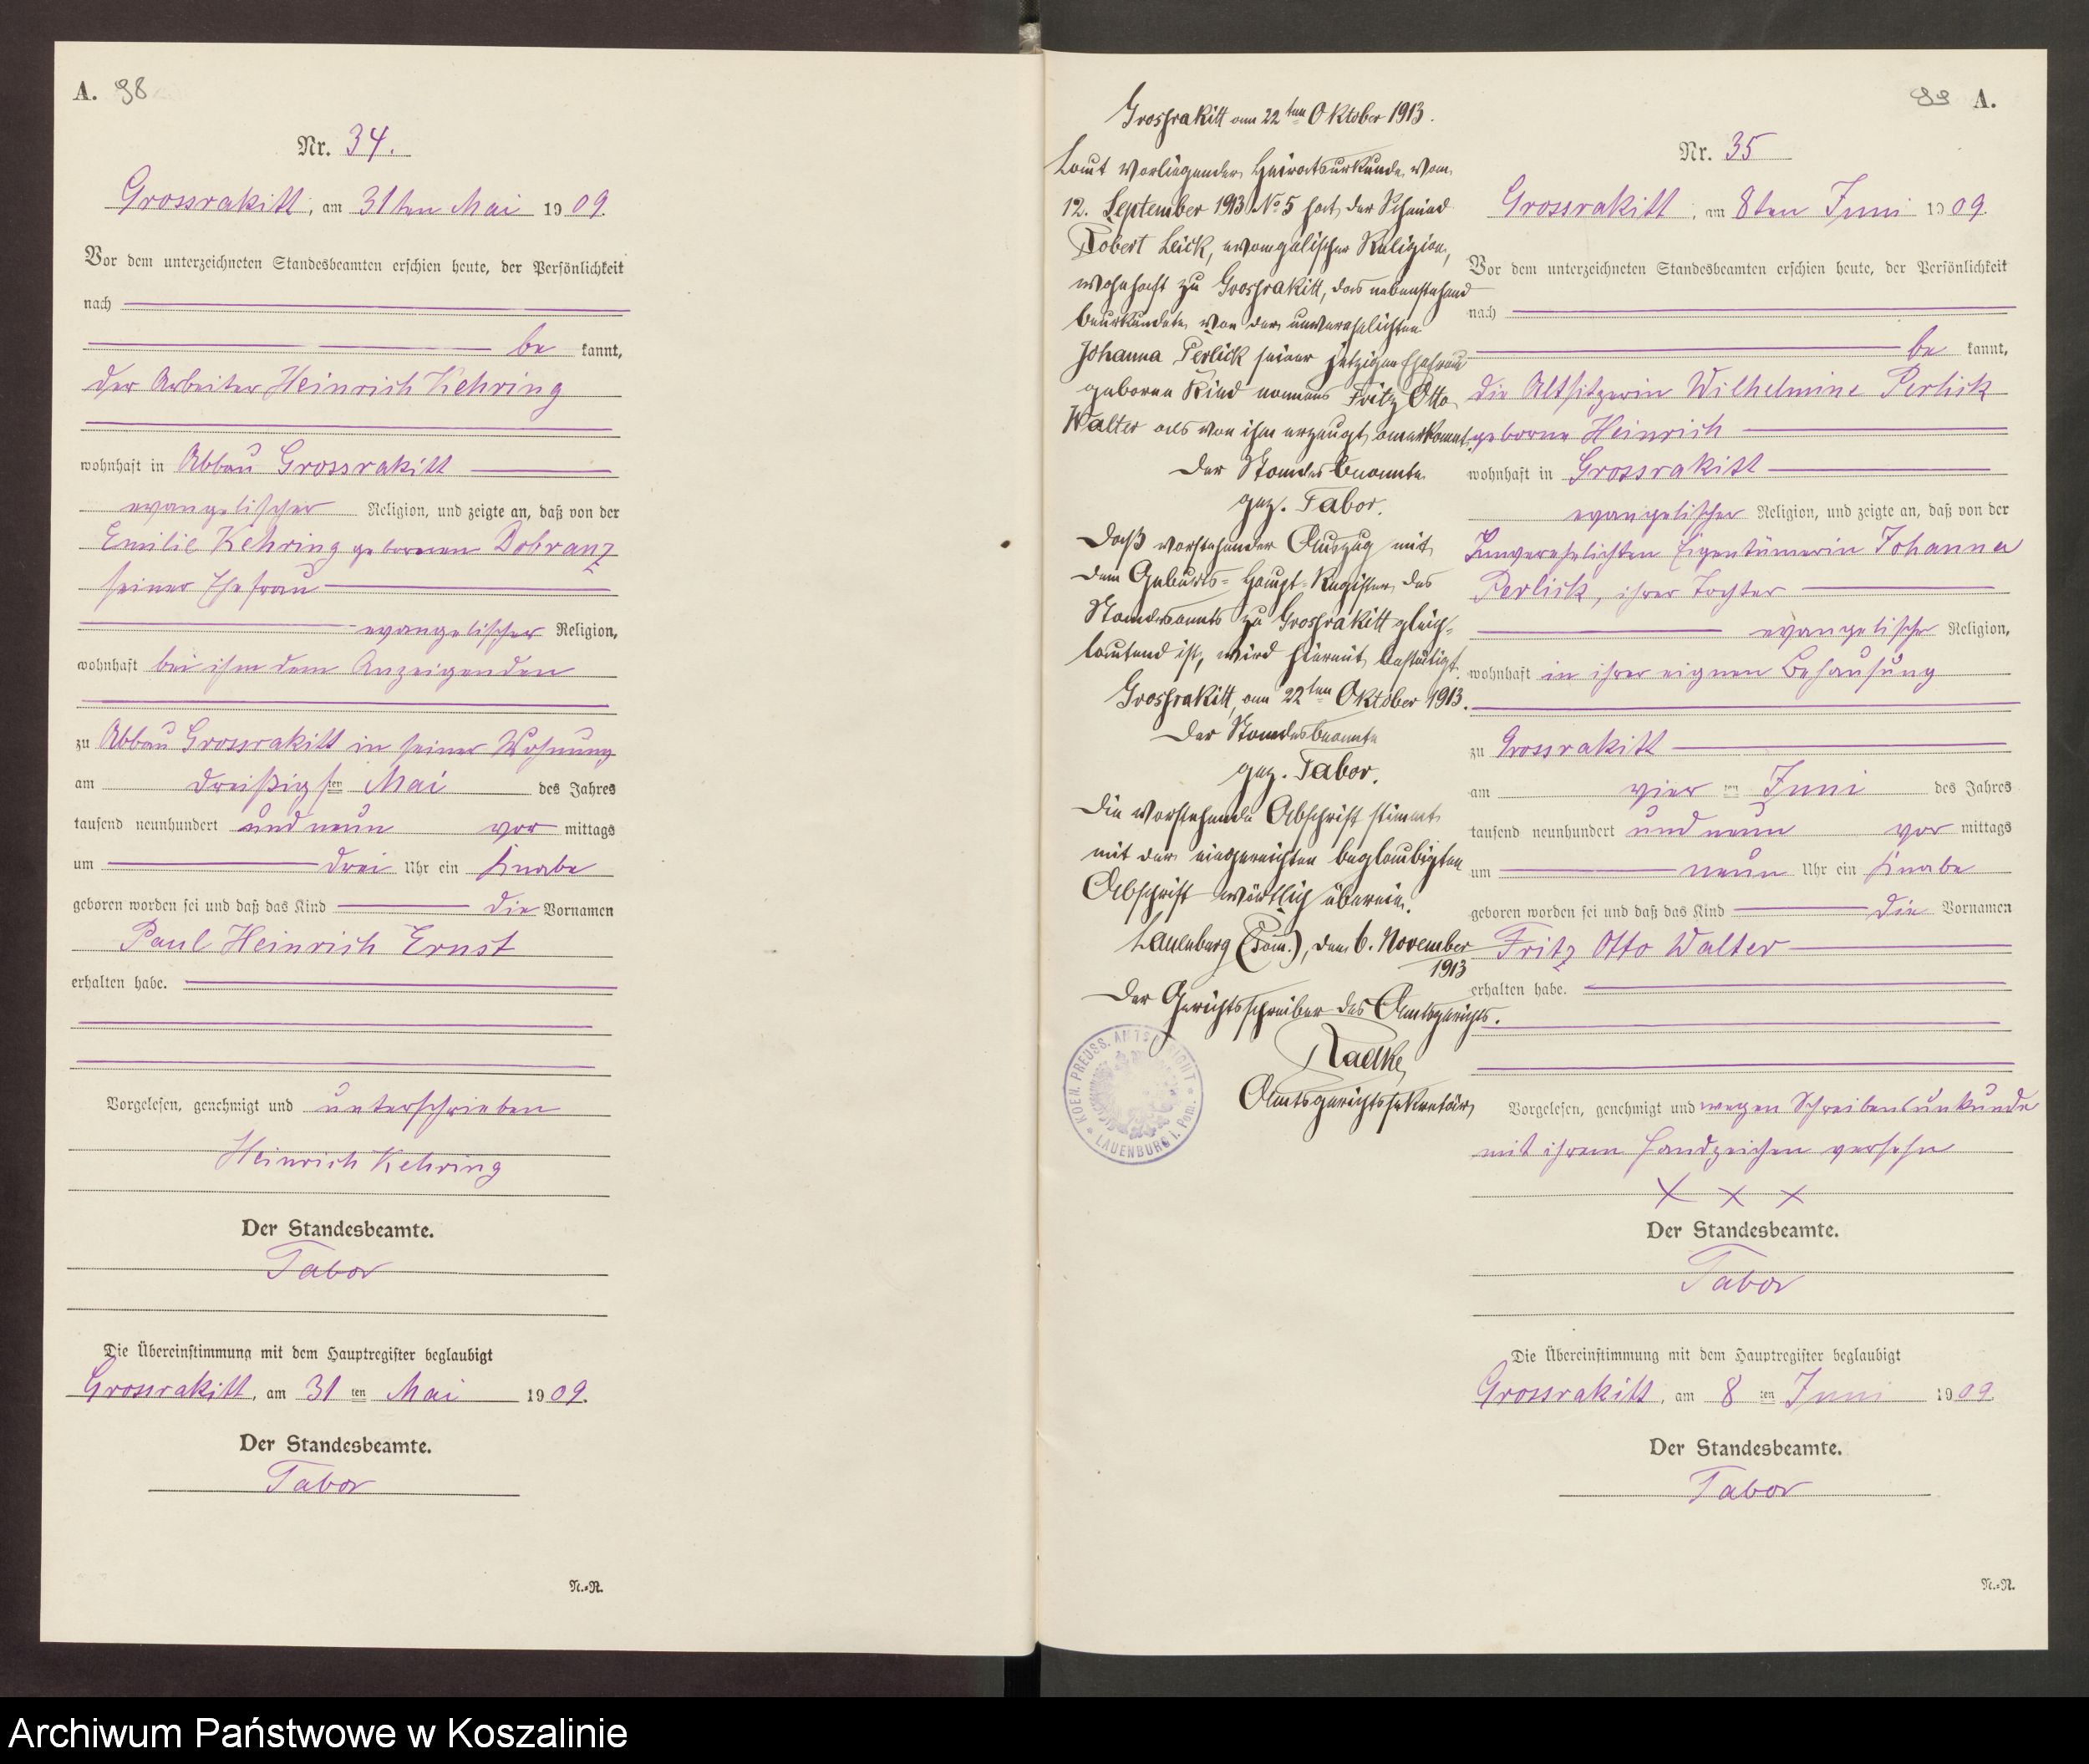 A. 98
Nr. 34.
Grossrakitt, am 31ten Mai 1909.
Vor dem unterzeichneten Standesbeamten erschien heute, der Persönlichkeit
nach
be kannt,
der Arbeiter Heinrich Kehring
wohnhaft in Abbau Grossrakitt
evangelischer Religion, und zeigte an, daß von der
Emilie Kehring geborenen Dobranz
seiner Ehefrau
evangelischer Religion,
wohnhaft bei ihm dem Anzeigenden
zu Abbau Grossrakitt in seiner Wohnung
am dreißigsten Mai des Jahres
tausend neunhundert und neun vor mittags
um drei Uhr ein Knabe
geboren worden sei und daß das Kind die Vornamen
Paul Heinrich Ernst
erhalten habe.
Vorgelesen, genehmigt und unterschrieben
Heinrich Kehring
Der Standesbeamte.
Tabor
Die Übereinstimmung mit dem Hauptregister beglaubigt
Grossrakitt, am 31 ten Mai 1909.
Der Standesbeamte.
Tabor
N.=N.
Grossrakitt am 22ten Oktober 1913.
Laut vorliegender Heiratsurkunde vom
12. September 1913 No 5 hat der Schmied
Robert Leick, evangelischer Religion,
wohnhaft zu Grossrakitt, das nebenstehend
beurkundete von der unverehelichten
Johanna Perlick seiner jetzigen Ehefrau
geborene Kind namens Fritz Otto
Walter als von ihm erzeugt anerkannt.
Der Standesbeamte
gez. Tabor.
Daß vorstehender Auszug mit
dem Geburts-Haupt-Register des
Standesamts zu Grossrakitt gleich-
lautend ist, wird hiermit bestätigt.
Grossrakitt, am 22ten Oktober 1913.
Der Standesbeamte
gez. Tabor.
Die vorstehende Abschrift stimmt
mit der eingereichten beglaubigten
Abschrift wörtlich überein.
Lauenburg (Pom.), den 6. November
1913
Der Gerichtsschreiber des Amtsgerichts.
Radke,
Amtsgerichtssekretär
KOEN. PREUSS. AMTSGERICHT * LAUENBURG i. Pom. *
99 A.
Nr. 35
Grossrakitt, am 8ten Juni 1909.
Vor dem unterzeichneten Standesbeamten erschien heute, der Persönlichkeit
nach
be kannt,
die Altsitzerin Wilhelmine Perlick
geborne Heinrich
wohnhaft in Grossrakitt
evangelischer Religion, und zeigte an, daß von der
Unverehelichten Eigentümerin Johanna
Perlick, ihrer Tochter
evangelischer Religion,
wohnhaft in ihrer eignen Behausung
zu Grossrakitt
am vier ten Juni des Jahres
tausend neunhundert und neun vor mittags
um neun Uhr ein Knabe
geboren worden sei und daß das Kind die Vornamen
Fritz Otto Walter
erhalten habe.
Vorgelesen, genehmigt und wegen Schreibensunkunde
mit ihrem Handzeichen versehn
X X X
Der Standesbeamte.
Tabor
Die Übereinstimmung mit dem Hauptregister beglaubigt
Grossrakitt, am 8 ten Juni 1909.
Der Standesbeamte.
Tabor
N.=N.
Archiwum Państwowe w Koszalinie